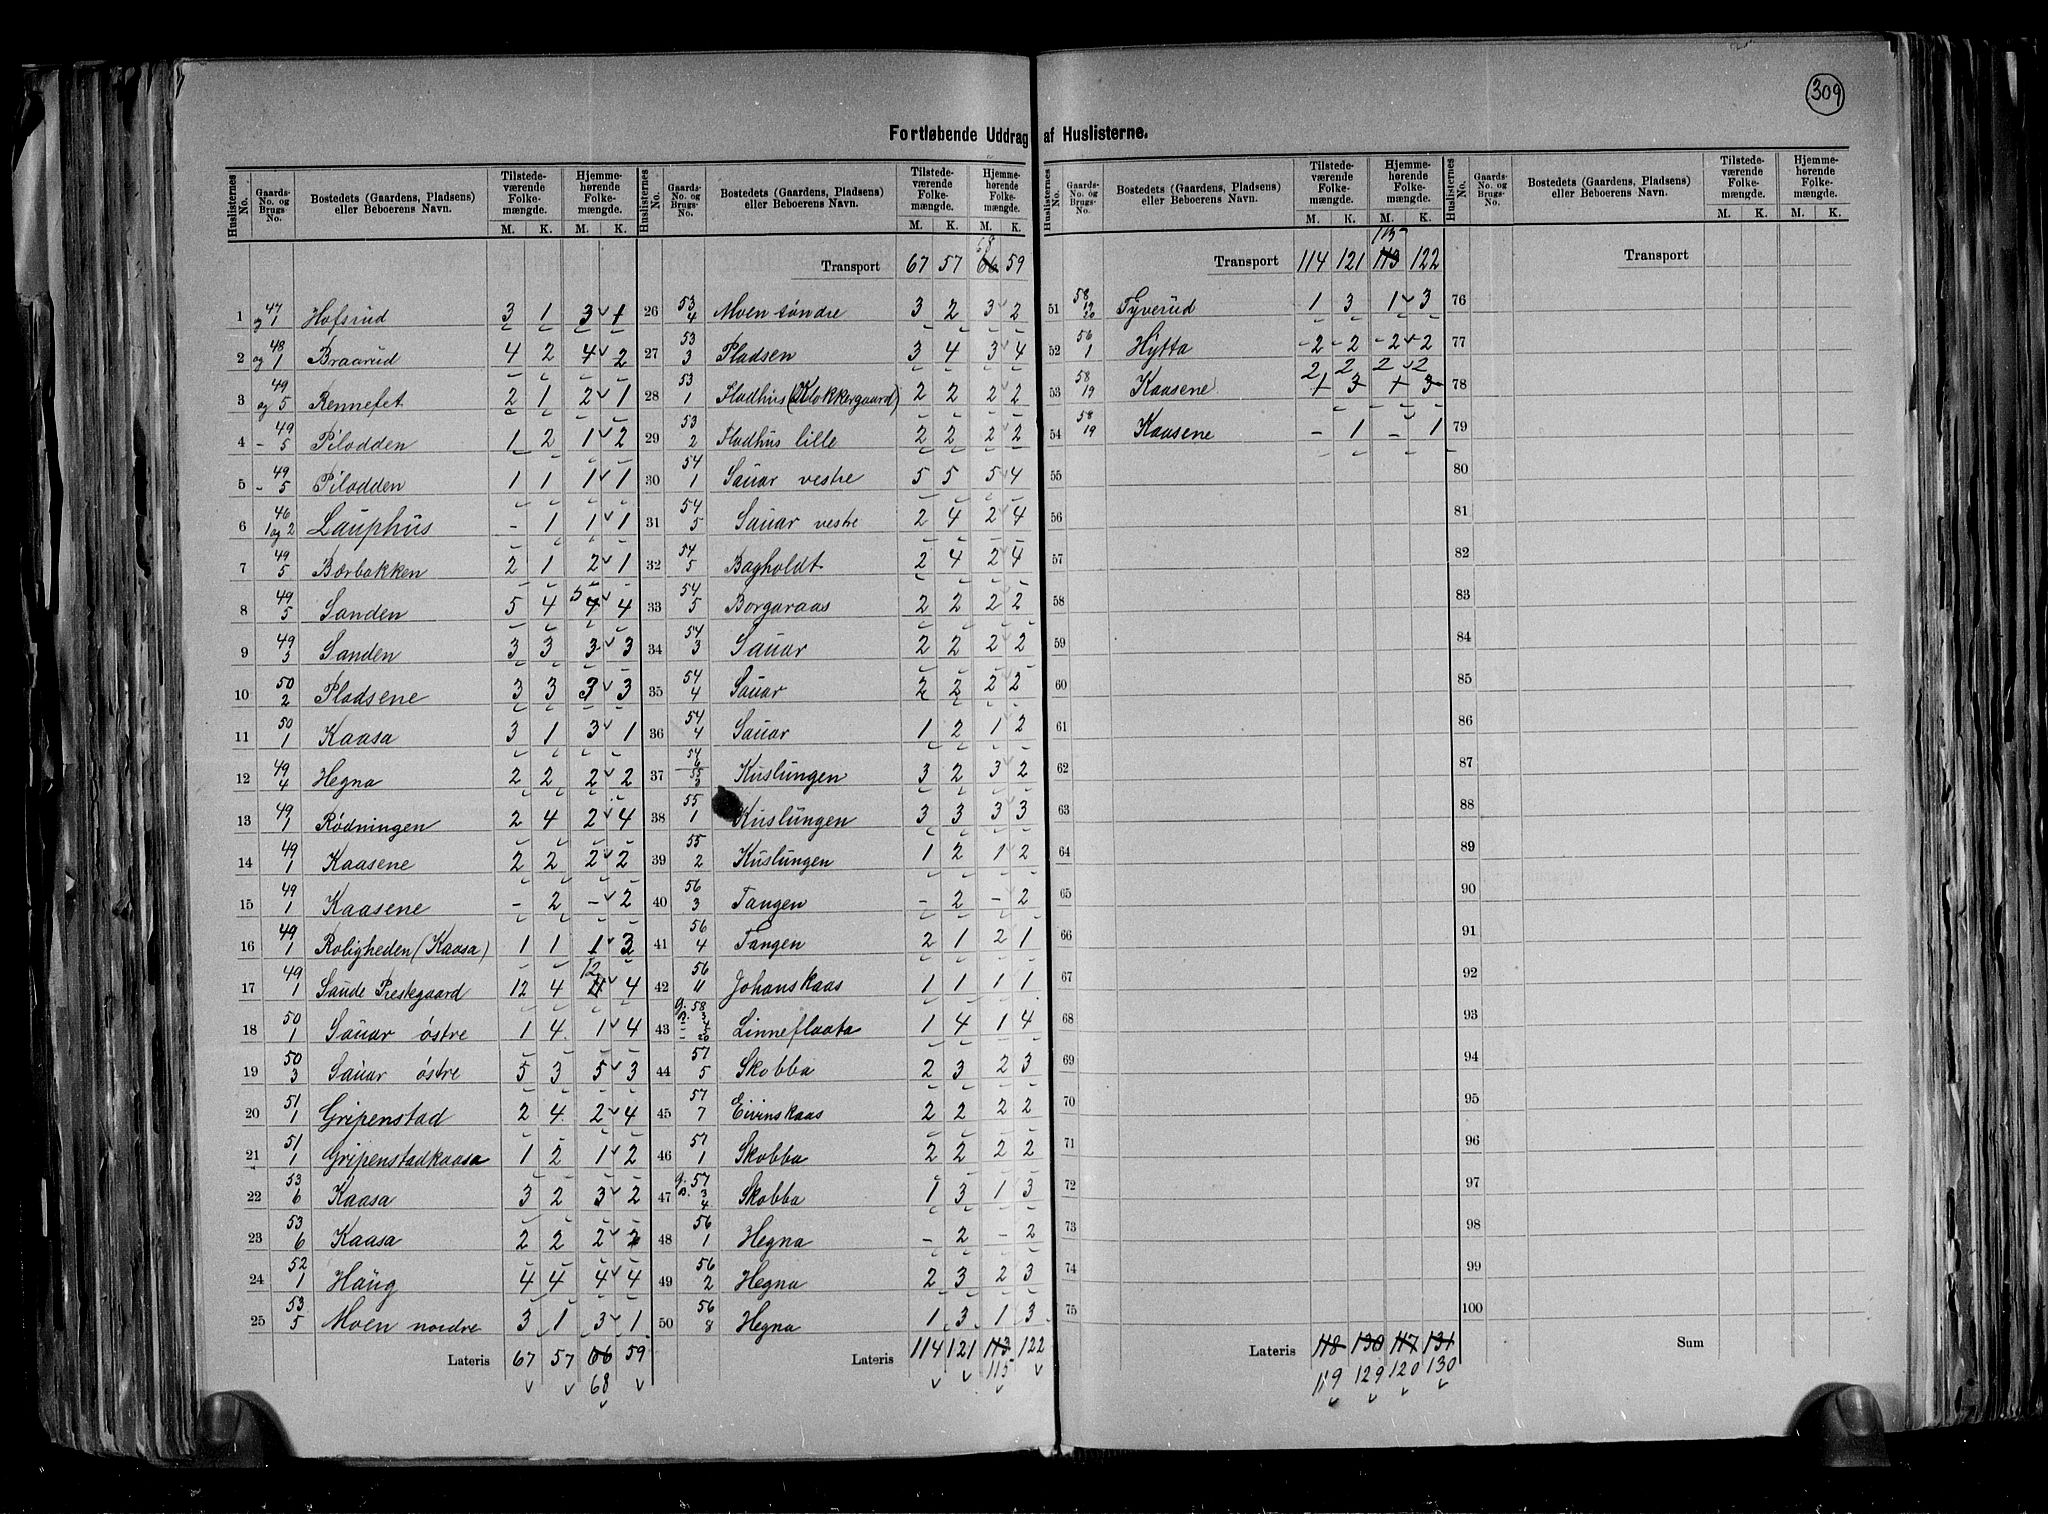 309
Fortløbende Uddrag af Huslisterne.
Huslisternes No. | Gaards-No. og Brugs-No. | Bostedets (Gaardens, Pladsens) eller Beboerens Navn. | Tilstedeværende Folkemængde. M. K. | Hjemmehørende Folkemængde. M. K.
1 47 og 1 Hofsrud 3 1 3 1
2 48 og 1 Braarud 4 2 4 2
3 49 og 5 Rennefet 2 1 2 1
4 49 - 5 Pilodden 1 2 1 2
5 49 - 5 Pilodden 1 1 1 1
6 46 1 og 2 Lauphus - 1 1 1
7 49 5 Bærbakken 2 1 2 1
8 49 5 Sanden 5 4 5 4 4
9 49 3 Sanden 3 3 3 3
10 50 2 Pladsene 3 3 3 3
11 50 1 Kaasa 3 1 3 1
12 49 4 Hegna 2 2 2 2
13 49 1 Rødningen 2 4 2 4
14 49 1 Kaasene 2 2 2 2
15 49 1 Kaasene - 2 - 2
16 49 1 Roligheden (Kaasa) 1 1 1 3
17 49 1 Saude Prestegaard 12 4 12 4
18 50 1 Sauar østre 1 4 1 4
19 50 3 Sauar østre 5 3 5 3
20 51 1 Gripenstad 2 4 2 4
21 51 1 Gripenstadkaasa 1 2 1 2
22 53 6 Kaasa 3 2 3 2
23 53 6 Kaasa 2 2 2 2
24 52 1 Haug 4 4 4 4
25 53 5 Moen nordre 3 1 3 1
Lateris 67 57 66 59
68
Huslisternes No. | Gaards-No. og Brugs-No. | Bostedets (Gaardens, Pladsens) eller Beboerens Navn. | Tilstedeværende Folkemængde. M. K. | Hjemmehørende Folkemængde. M. K.
68
Transport 67 57 66 59
26 53 4 Moen søndre 3 2 3 2
27 53 3 Pladsen 3 4 3 4
28 53 1 Flodhus (Klokkergaard) 2 2 2 2
29 53 2 Flodhus lille 2 2 2 2
30 54 1 Sauar vestre 5 5 5 4
31 54 5 Sauar vestre 2 4 2 4
32 54 5 Bagholdt 2 4 2 4
33 54 5 Borgaraas 2 2 2 2
34 54 3 Sauar 2 2 2 2
35 54 4 Sauar 2 2 2 2
36 54 4 Sauar 1 2 1 2
37 54 6 55 3 Kuslungen 3 2 3 2
38 55 1 Kuslungen 3 3 3 3
39 55 2 Kuslungen 1 2 1 2
40 56 3 Tangen - 2 - 2
41 56 4 Tangen 2 1 2 1
42 56 11 Johanskaas 1 1 1 1
43 G. 58 B. 3 - 4 - 20 Linneflaata 1 4 1 4
44 57 5 Skobba 2 3 2 3
45 57 7 Eivinskaas 2 2 2 2
46 57 1 Skobba 2 2 2 2
47 G. 57 B. 3 4 Skobba 1 3 1 3
48 56 1 Hegna - 2 - 2
49 56 2 Hegna 2 3 2 3
50 56 8 Hegna 1 3 1 3
Lateris 114 121 113 122
115
Huslisternes No. | Gaards-No. og Brugs-No. | Bostedets (Gaardens, Pladsens) eller Beboerens Navn. | Tilstedeværende Folkemængde. M. K. | Hjemmehørende Folkemængde. M. K.
115
Transport 114 121 113 122
51 58 19 20 Tyverud 1 3 1 3
52 56 1 Hytta 2 2 2 2
2 2 2 2
53 58 19 Kaasene 1 3 1 3
54 58 19 Kaasene - 1 - 1
55
56
57
58
59
60
61
62
63
64
65
66
67
68
69
70
71
72
73
74
75
Lateris 118 130 117 131
119 129 120 130
Huslisternes No. | Gaards-No. og Brugs-No. | Bostedets (Gaardens, Pladsens) eller Beboerens Navn. | Tilstedeværende Folkemængde. M. K. | Hjemmehørende Folkemængde. M. K.
Transport
76
77
78
79
80
81
82
83
84
85
86
87
88
89
90
91
92
93
94
95
96
97
98
99
100
Sum